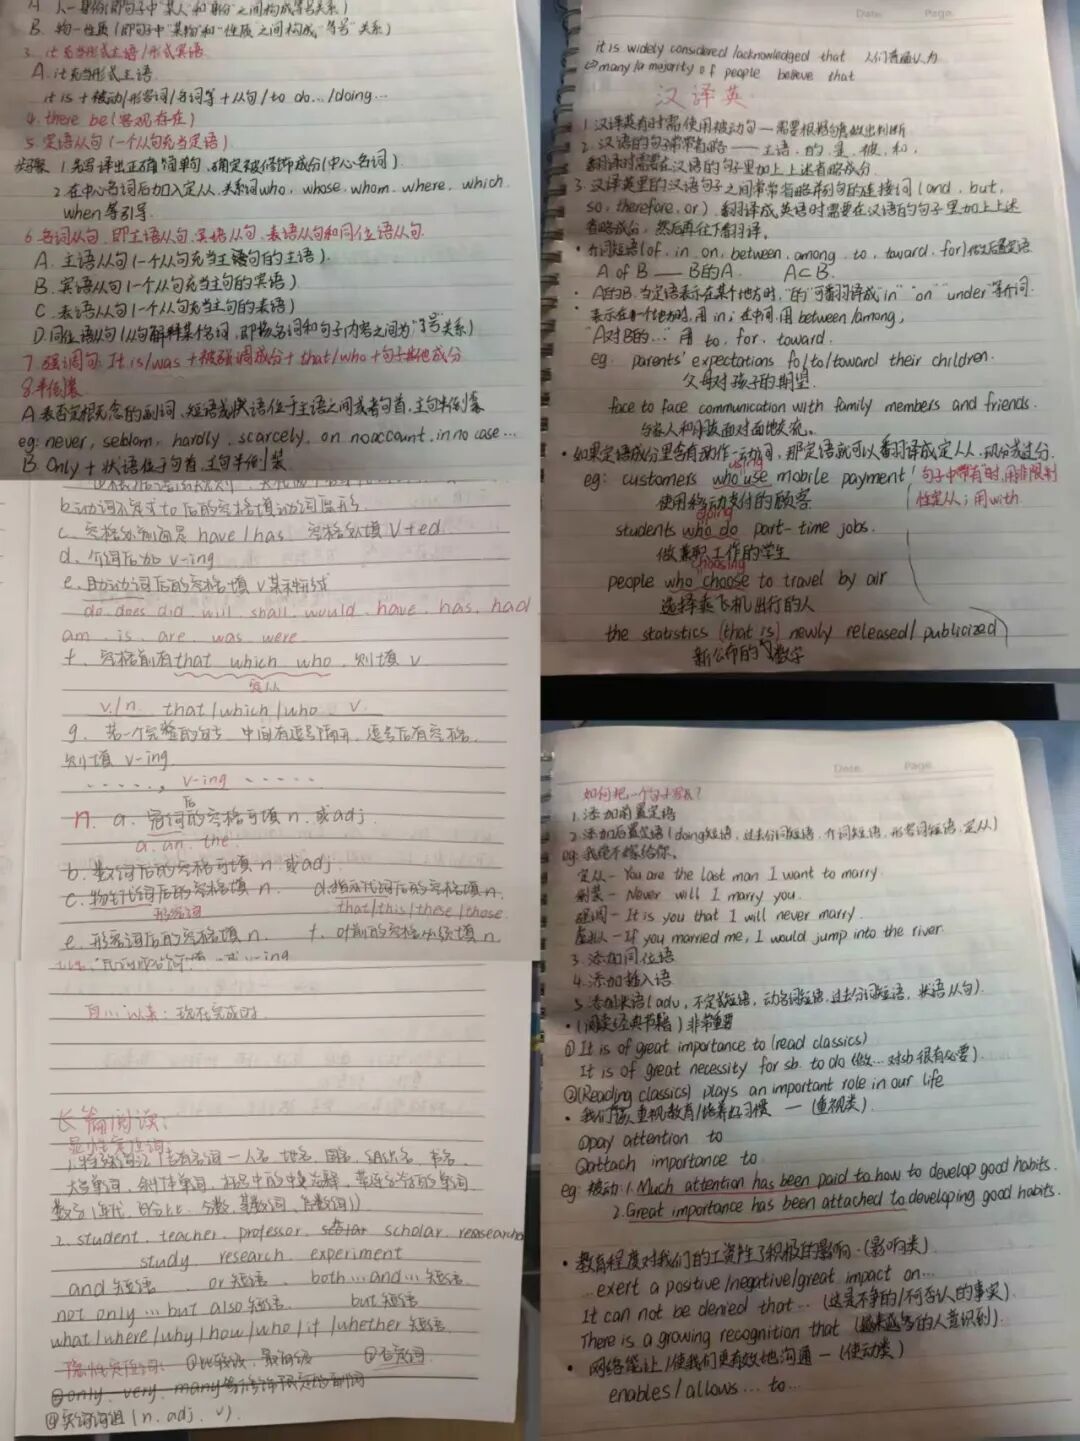 B. 物一性质(即句子中"某物"和"性质"之间构成"等号"关系)
3. it充当形式主语/形式宾语
A. it充当形式主语
it is + 被动/形容词/名词等 + 从句/to do.../doing...
4. there be(客观存在)
5. 定语从句(一个从句充当定语)
步骤 1.先写译出正确简单句,确定被修饰成分(中心名词).
2.在中心名词后加入定从.关系词who, whose, whom, where, which
when等引导.
6.名词从句,即主语从句.宾语从句.表语从句和同位语从句.
A. 主语从句(一个从句充当主句的主语).
B. 宾语从句(一个从句充当主句的宾语)
C. 表语从句(一个从句充当主句的表语)
D.同位语从句(从句解释某名词,即换名词和句子内容之间为"等号"关系)
7.强调句. It is/was + 被强调成分 + that/who + 句子其他成分
8.半倒装
A.表否定概念的副词、短语或状语位于主语之间或者句首,主句半倒装
eg: never, seblom, hardly, scarcely, on no account, in no case...
B. Only + 状语位于句首.主句半倒装
b.动词不定式to后的空格填动词原形
c. 空格处前面是 have/has 空格处填 V+ed.
d. 介词后加 v-ing
e.助动词后的空格填v某种形式
do does did will shall would have has had
am is are was were
f. 空格前有that which who,则填 v
定从
v./n. that/which/who v.
g. 若一个完整的句子,中间有逗号隔开,逗号后有空格,
则填 v-ing
......, v-ing ......
n. a. 冠词后的空格可填 n.或adj.
a. an. the.
b. 数词后的空格可填 n.或adj.
c. 物主代词后的空格填 n. d.指示代词后的空格填 n.
形容词 that/this/these/those.
e. 形容词后的空格填 n. f. of前的空格必须填 n.
自从以来:现在完成时.
长篇阅读:
显性定位词:
1.特殊词汇(专有名词—人名、地名、国名、书名、
数字(年代、百分比、分数、基数词、序数词))
2. student, teacher, professor, scholar researcher
study, research, experiment
and短语 or短语 both...and...短语
not only...but also短语 but短语
what/where/why/how/who/if/whether短语
隐性定位词: ①比较级,最高级 ②否定词
③only, very, many等修饰限定的副词
④实词词组(n. adj. v.)
it is widely considered/acknowledged that 人们普遍认为
⇒ many/a majority of people believe that
汉译英
1.汉译英有时需使用被动句—需要根据句意做出判断
2. 汉语的句子常常省略——主语、的、是、被、和,
翻译时需要在汉语的句子里加上上述省略成分.
3. 汉译英里的汉语句子之间常常省略并列句的连接词(and, but,
so, therefore, or),翻译成英语时需要在汉语的句子里加上上述
省略成分,然后再往下翻译。
• 介词短语(of, in, on, between, among, to, toward, for)做后置定语.
A of B —— B的A. A⊂B.
• A的B.当定语表示在某个地方时,"的"可翻译成"in" "on" "under"等介词.
表示在一个地方时,用in;在中间,用between/among,
"A对B的..." 用 to, for, toward.
eg: parents' expectations for/to/toward their children.
父母对孩子的期望.
face to face communication with family members and friends.
与家人和朋友面对面地交流。
• 如果定语成分里含有动作—动词,那定语就可以翻译成定从,现分或过分.
using
eg: customers who use mobile payment (句子中带有"有"时,用非限制
使用移动支付的顾客 性定从;用with.
doing
students who do part-time jobs.
做兼职工作的学生
choosing
people who choose to travel by air
选择乘飞机出行的人
the statistics (that is) newly released/publicized
新公布的数字
如何把一个句子写长?
1.添加前置定语
2.添加后置定语(doing短语,过去分词短语,介词短语,形容词短语,定从)
eg: 我绝不嫁给你。
定从 - You are the last man I want to marry.
倒装 - Never will I marry you.
强调 - It is you that I will never marry.
虚拟 - If you married me, I would jump into the river.
3. 添加同位语
4. 添加插入语
5. 添加状语(adv, 不定式短语, 动名词短语, 过去分词短语, 状语从句).
• (阅读经典书籍)非常重要
① It is of great importance to (read classics)
It is of great necessity for sb. to do (做...对sb很有必要).
②(Reading classics) plays an important role in our life
• 我们应该重视教育/培养好习惯 — (重视类).
①pay attention to
②attach importance to.
eg: 被动: 1. Much attention has been paid to how to develop good habits.
2. Great importance has been attached to developing good habits.
• 教育程度对我们的工资产生了积极的影响.(影响类)
...exert a positive/negative/great impact on...
It can not be denied that... (这是不争的/不可否认的事实)
There is a growing recognition that (越来越多的人意识到).
• 网络能让/使我们更有效地沟通 — (使动类)
enables/allows ... to...